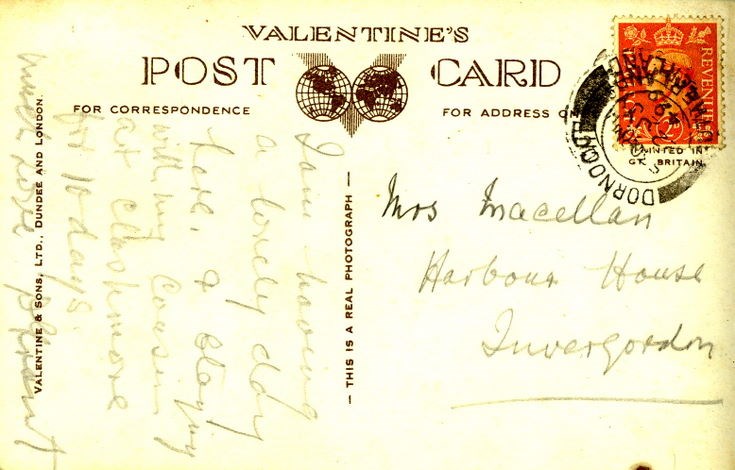 VALENTINE'S
POST CARD
FOR CORRESPONDENCE
FOR ADDRESS ON
REVENUE
PRINTED IN
GT. BRITAIN
DORNOCH
SUTHERLAND
I am having
a lovely day
here. & staying
with my Cousin
at Clashmore
for 10 days.
much love
VALENTINE & SONS, LTD., DUNDEE AND LONDON.
— THIS IS A REAL PHOTOGRAPH —
Mrs Macellan
Harbour House
Invergordon